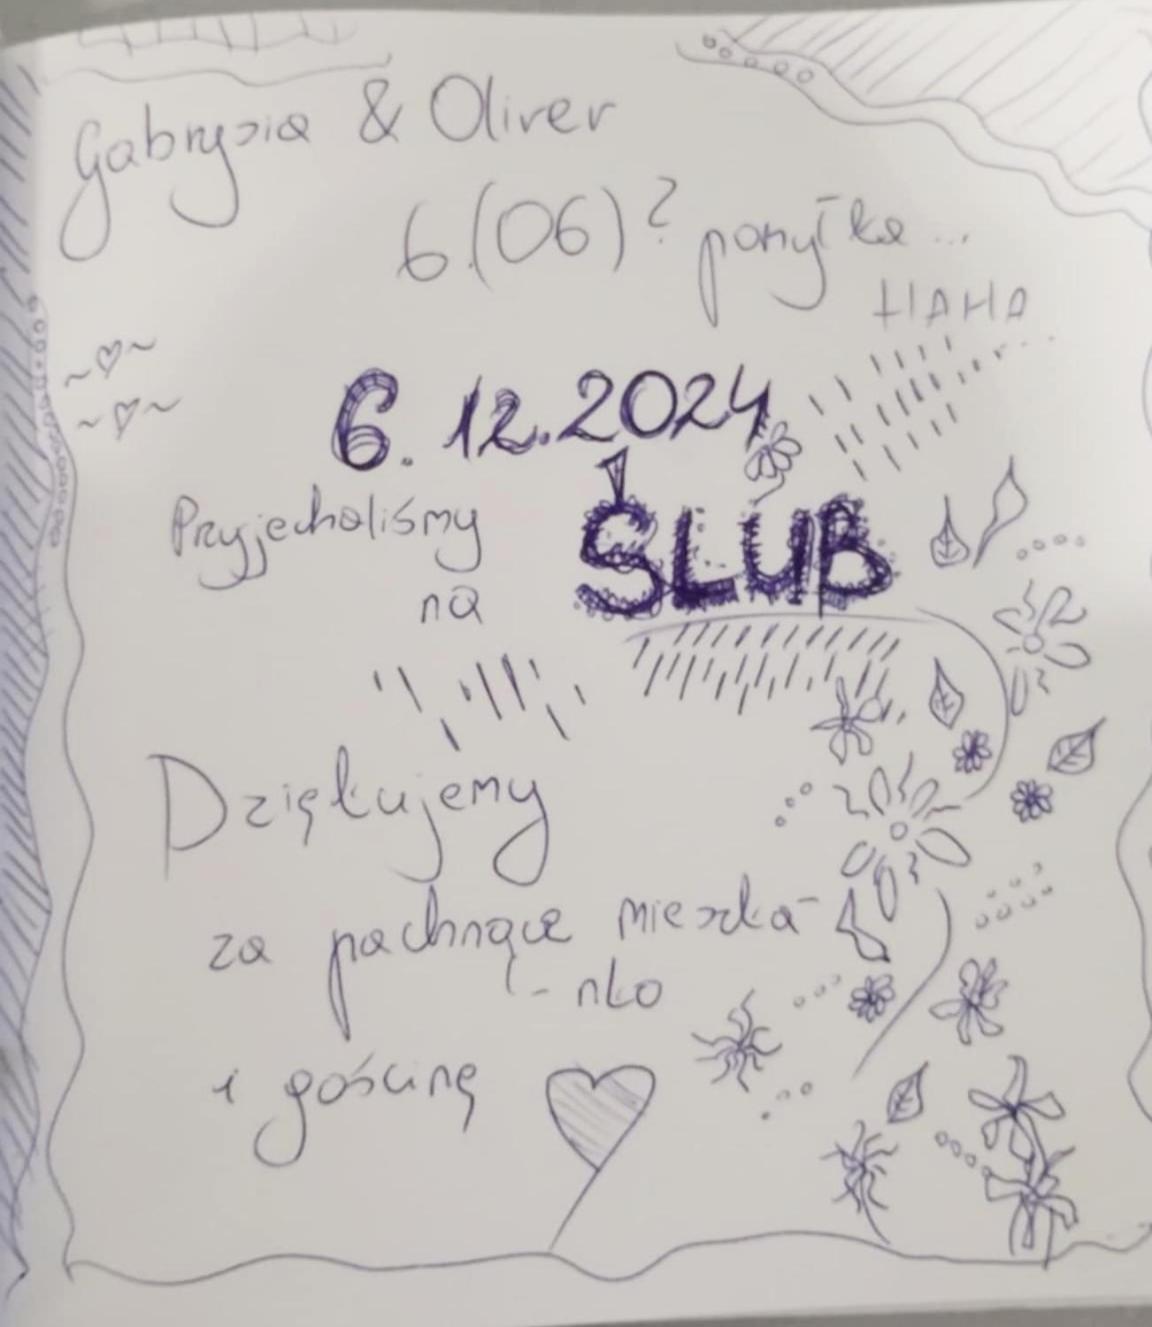 Gabrysia & Oliver
6.(06)? pomyłka...
HAHA
6.12.2024
Przyjechaliśmy
na ŚLUB
Dziękujemy
za pachnące mieszka-
- nko
i gościnę